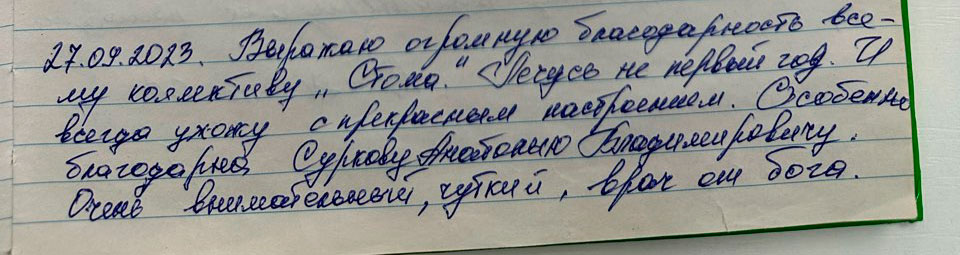 27.09.2023. Выражаю огромную благодарность все-
му коллективу „Стома." Лечусь не первый год. И
всегда ухожу с прекрасным настроением. Особенно
благодарна Суркову Анатолию Владимировичу.
Очень внимательный, чуткий, врач от бога.